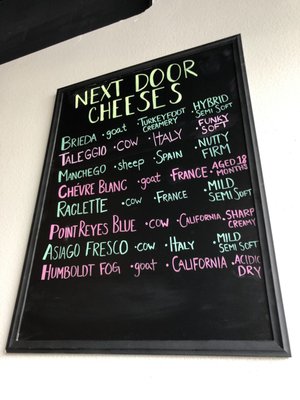 NEXT DOOR
CHEESES
BRIEDA · goat · TURKEYFOOT CREAMERY · HYBRID SEMI SOFT
TALEGGIO · COW · ITALY · FUNKY SOFT
MANCHEGO · sheep · SPAIN · NUTTY FIRM
CHÈVRE BLANC · goat · FRANCE · AGED 18 MONTHS
RACLETTE · COW · FRANCE · MILD SEMI SOFT
POINT REYES BLUE · COW · CALIFORNIA · SHARP CREAMY
ASIAGO FRESCO · COW · ITALY · MILD SEMI SOFT
HUMBOLDT FOG · goat · CALIFORNIA · ACIDIC DRY